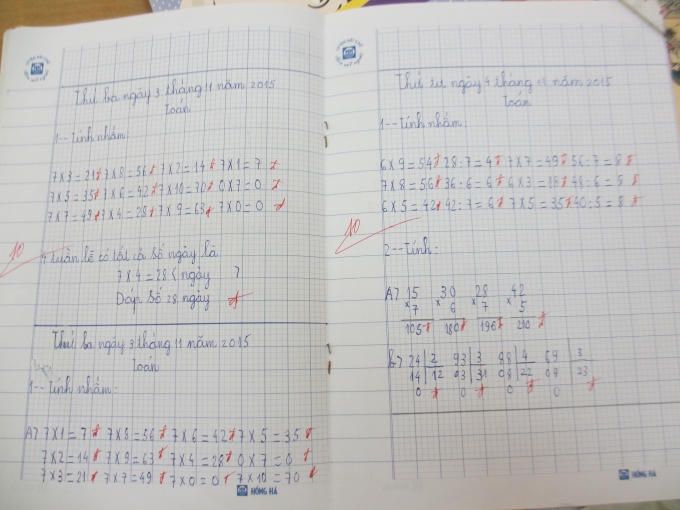 Thứ ba ngày 3 tháng 11 năm 2015
Toán
1-- Tính nhẩm:
7 x 3 = 21 7 x 8 = 56 7 x 2 = 14 7 x 1 = 7
7 x 5 = 35 7 x 6 = 42 7 x 10 = 70 0 x 7 = 0
7 x 7 = 49 7 x 4 = 28 7 x 9 = 63 7 x 0 = 0
10
4 tuần lễ có tất cả số ngày là
7 x 4 = 28 ( ngày )
Đáp số 28 ngày
Thứ ba ngày 3 tháng 11 năm 2015
Toán
1-- Tính nhẩm:
A) 7 x 1 = 7 7 x 8 = 56 7 x 6 = 42 7 x 5 = 35
7 x 2 = 14 7 x 9 = 63 7 x 4 = 28 0 x 7 = 0
7 x 3 = 21 7 x 7 = 49 7 x 0 = 0 7 x 10 = 70
HỒNG HÀ
Thứ tư ngày 4 tháng 11 năm 2015
Toán
1-- Tính nhẩm:
6 x 9 = 54 28 : 7 = 4 7 x 7 = 49 56 : 7 = 8
7 x 8 = 56 36 : 6 = 6 6 x 3 = 18 48 : 6 = 8
6 x 5 = 42 42 : 7 = 6 7 x 5 = 35 40 : 5 = 8
10
2-- Tính:
A) 15 30 28 42
x 7 x 6 x 7 x 5
105 180 196 210
B) 24 2 93 3 88 4 69 3
14 12 03 31 08 22 09 23
0 0 0 0
HỒNG HÀ